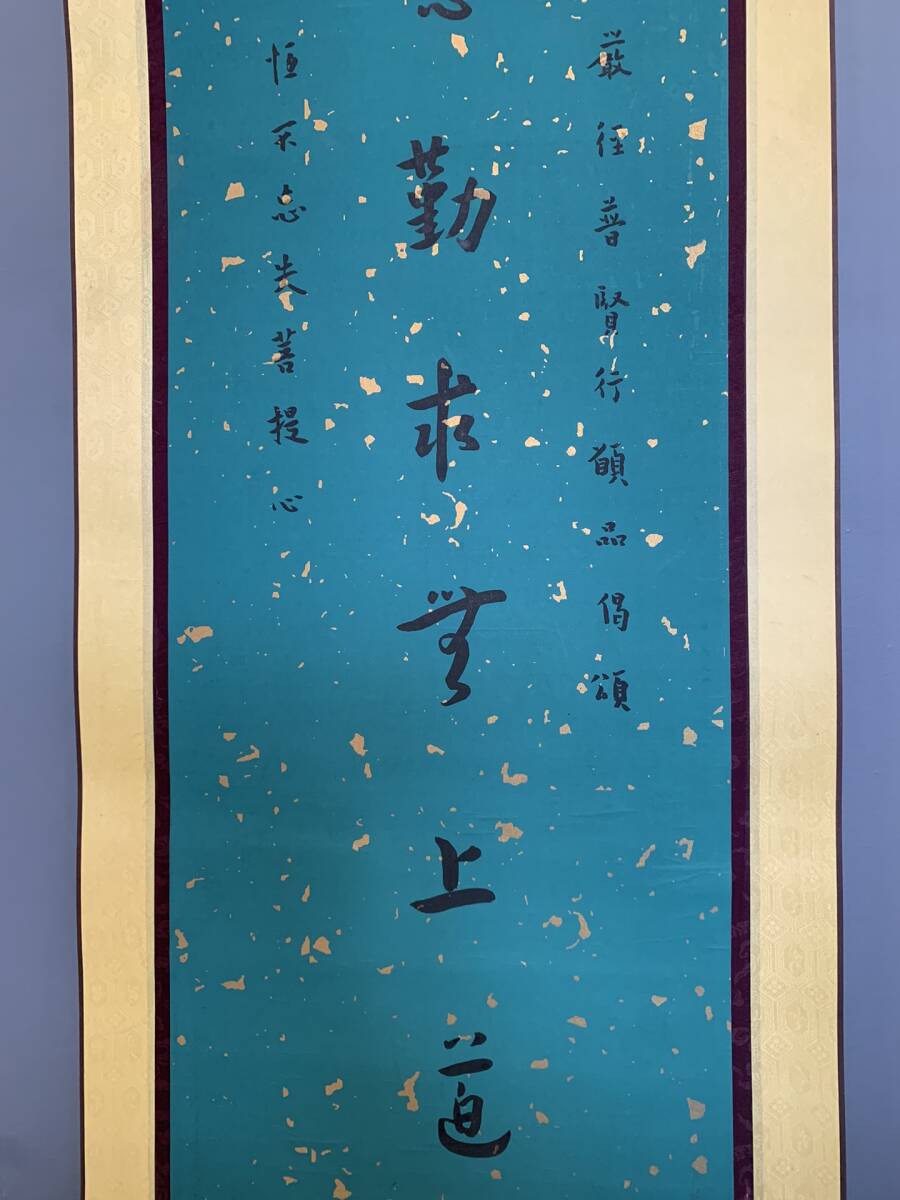 嚴经普賢行願品偈頌
勤求無上道
恒不忘失菩提心